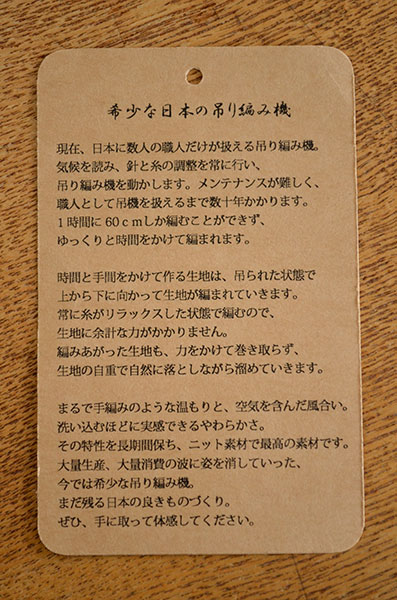 希少な日本の吊り編み機
現在、日本に数人の職人だけが扱える吊り編み機。
気候を読み、針と糸の調整を常に行い、
吊り編み機を動かします。メンテナンスが難しく、
職人として吊機を扱えるまで数十年かかります。
1時間に60cmしか編むことができず、
ゆっくりと時間をかけて編まれます。
時間と手間をかけて作る生地は、吊られた状態で
上から下に向かって生地が編まれていきます。
常に糸がリラックスした状態で編むので、
生地に余計な力がかかりません。
編みあがった生地も、力をかけて巻き取らず、
生地の自重で自然に落としながら溜めていきます。
まるで手編みのような温もりと、空気を含んだ風合い。
洗い込むほどに実感できるやわらかさ。
その特性を長期間保ち、ニット素材で最高の素材です。
大量生産、大量消費の波に姿を消していった、
今では希少な吊り編み機。
まだ残る日本の良きものづくり。
ぜひ、手に取って体感してください。